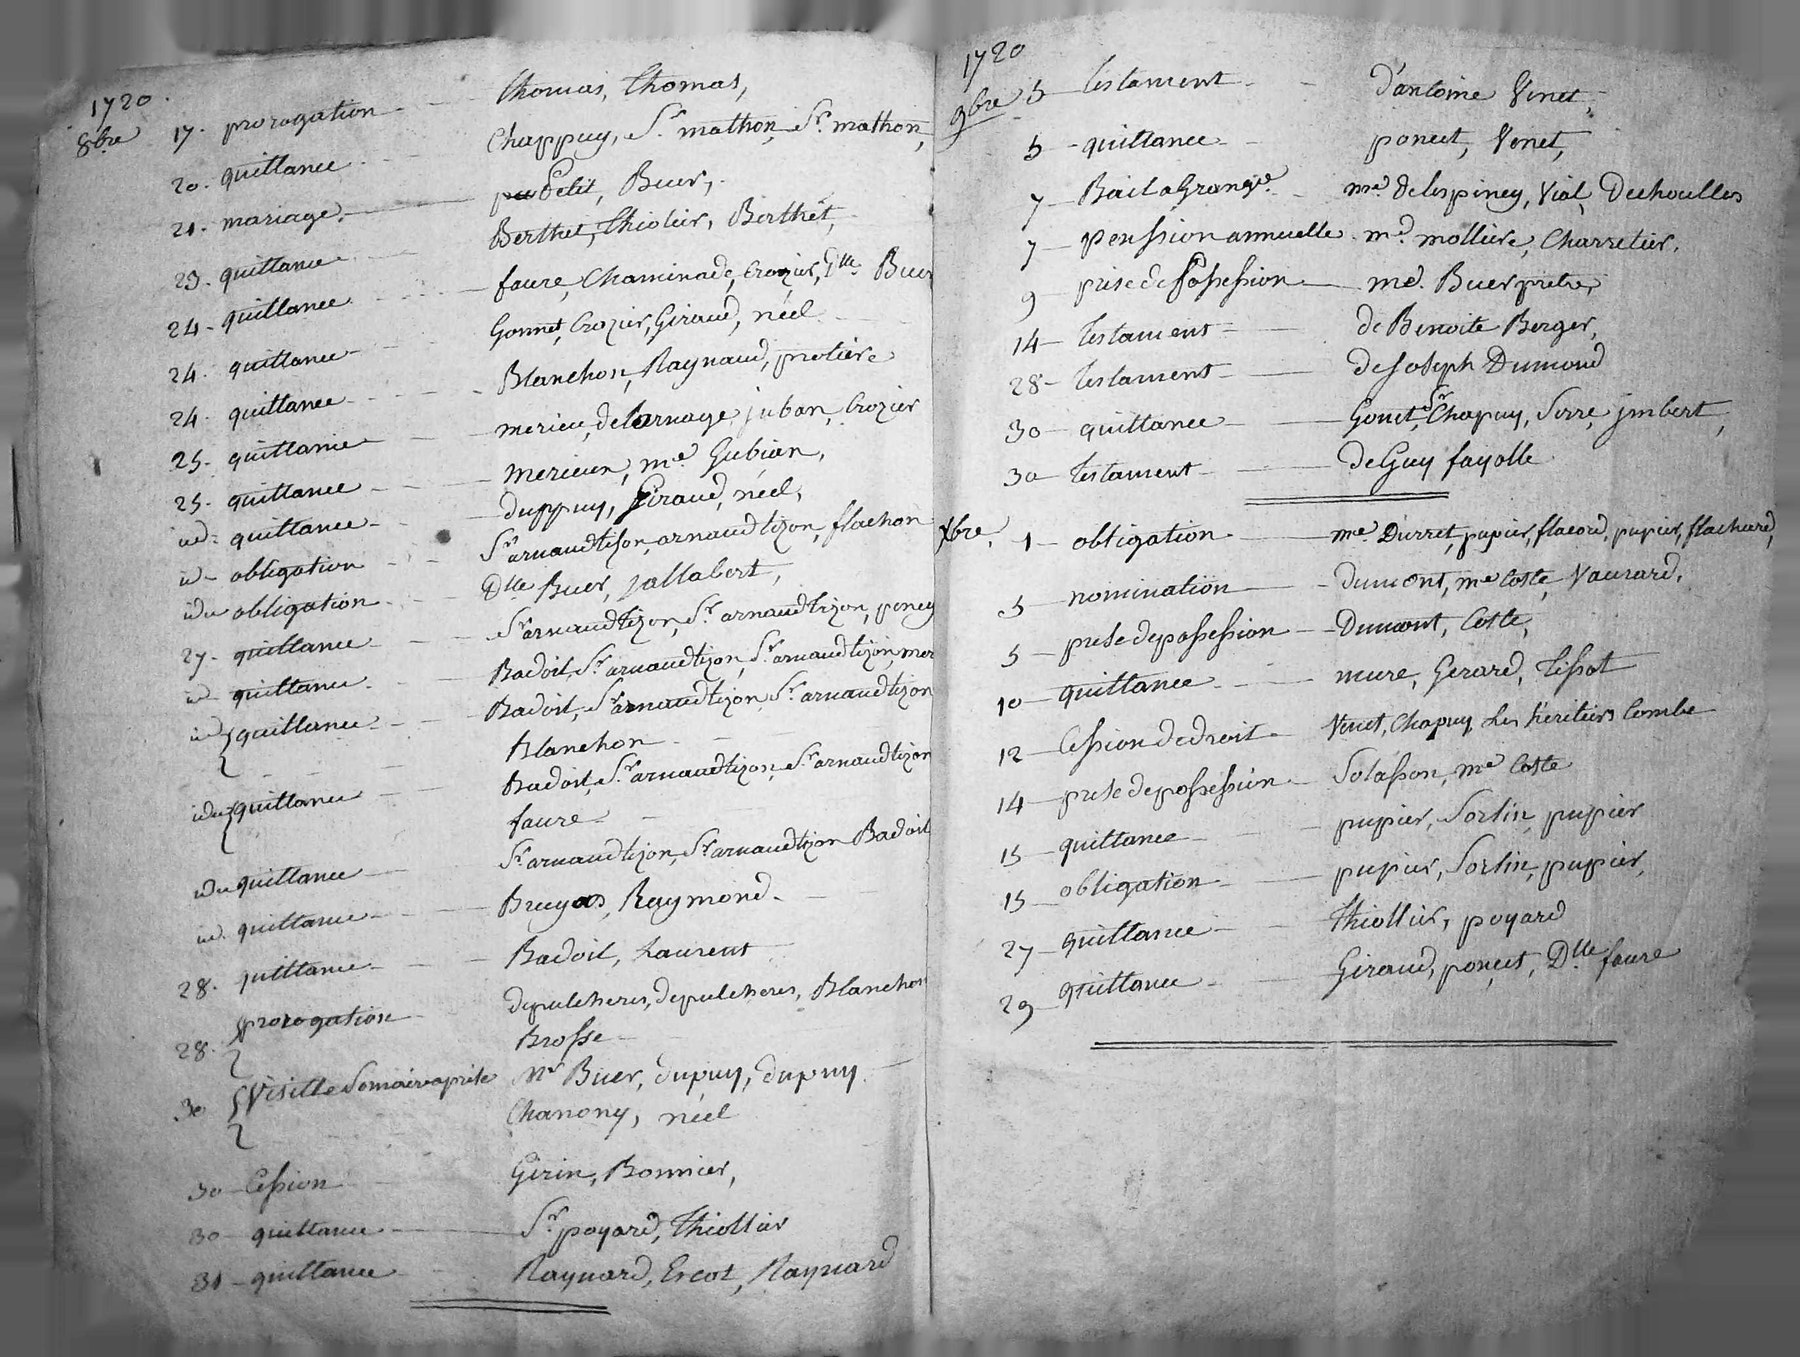 1720.
8bre 17. prorogation - thomas, thomas,
20. quittance - Chappuy, Sr. mathon, Sr. mathon,
21. mariage. - Petit, Buer,
23. quittance - Berthet, Thiolier, Berthet,
24 - quittance - faure, Chaminade, Crozier, Dlle. Buer
24. quittance - Gonnet, Crozier, Giraud, néel
24. quittance - Blanchon, Raynaud, protiere
25. quittance - merieu, delarnage, juban, Crozier
25. quittance - merieux, me. Gubian,
id - quittance - duppuy, Giraud, néel,
id - obligation - Sr. arnaudtison, arnaudtizon, flachon
idu obligation - Dlle Buer, jallabert,
27 - quittance - Sr. arnaudtizon, Sr. arnaudtizon, poney
id - quittance - Badoit, Sr. arnaudtizon, Sr. arnaudtizon, mer
id { quittance - Badoit, Sr. arnaudtizon, Sr. arnaudtizon
Blanchon
idu { quittance - Badoit, Sr. arnaudtizon, Sr. arnaudtizon
faure
idu quittance - Sr. arnaudtizon, Sr. arnaudtizon Badoit
id. quittance - Bruyas, Raymond
28. quittance - Badoit, Laurent
28. { prorogation - depulcheres, depulcheres, Blanchon
Brosse
30 { Visitte Somaireaprise Mr Buer, dupuy, dupuy
Chanony, néel
30 - Cession - Girin, Bonnier,
30 - quittance - Sr. poyard, Thiollier
31 - quittance - Raynard, Ercot, Raynard
1720
9bre 5 testament - d'antoine Venet,
5 - quittance - poncet, Venet,
7 - Bail a Grange - me. delespiney, Vial, Dechoulles
7 - penssion annuelle - md. molliere, Charretier,
9 - prise de possession - me. Buer pretre,
14 - testament - de Benoite Berger,
28 - testament - de Joseph Dumond
30 - quittance - Gonet, Sr Chapuy, Serre, jmbert,
30 testament - de Guy fayolle
Xbre, 1 - obligation - me. Durret, pupier, flacord, pupier, flachard,
5 - nomination - dumont, me Coste, Vaurard,
5 - prise de possession - Dumont, Coste,
10 - quittance - mure, Gerard, tissot
12 - Cession de droit - Venet, Chapuy, Les heritiers Combe
14 - prise de possession - Solasson, me Coste
15 - quittance - pupier, Sorlin, pupier
15 - obligation - pupier, Sorlin, pupier,
27 - quittance - Thiollier, poyard
29 - quittance - Giraud, poncet, Dlle faure